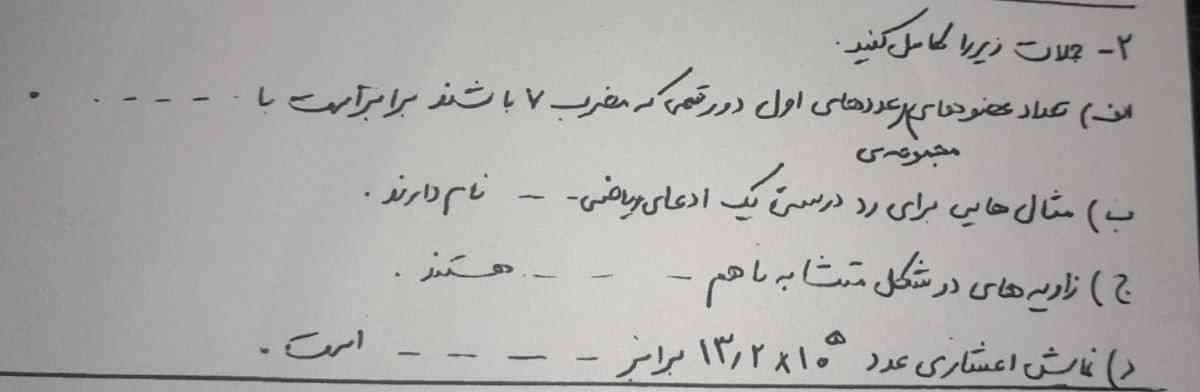 ۲- جملات زیر را کامل کنید.
الف) تعداد عضوهای مجموعه‌ی عددهای اول دورقمی که مضرب ۷ باشند برابر است با - - - - .
ب) مثال هایی برای رد درستی یک ادعای ریاضی - - نام دارند.
ج) زاویه های دو شکل متشابه با هم - - - هستند.
د) نمایش اعشاری عدد ۱۳٫۲×۱۰^۵ برابر - - - - است.